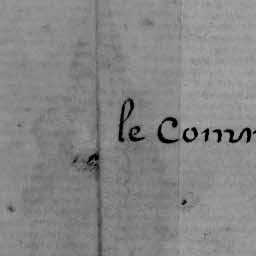 le Comm